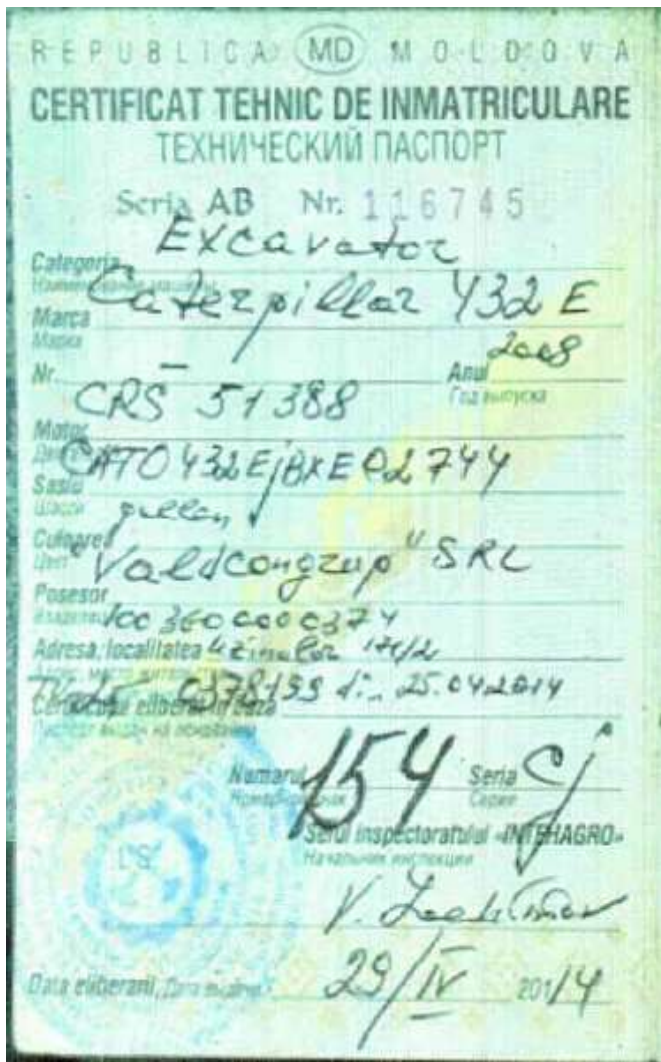 REPUBLICA MD MOLDOVA
CERTIFICAT TEHNIC DE INMATRICULARE
ТЕХНИЧЕСКИЙ ПАСПОРТ
Seria AB Nr. 116745
Excavator
Categoria
Наименование машины
Caterpillar 432 E
Marca
Марка
2008
Nr. — Anul
Год выпуска
CRS 51388
Motor
CATO432EjBXE02744
Sasiu
Шасси
galben
Culoarea
Цвет
"Valdcongrup" SRL
Posesor
Владелец
Adresa, localitatea Uzinelor
0378199 din 25.04.2014
Certificatul eliberat in baza
Паспорт выдан на основании
Numarul 154 Seria Cj
Номерной знак Серия
Seful inspectoratului «INTEHAGRO»
Начальник инспекции
L.S.
V.
Data eliberarii, Дата выдачи 29/IV 2014